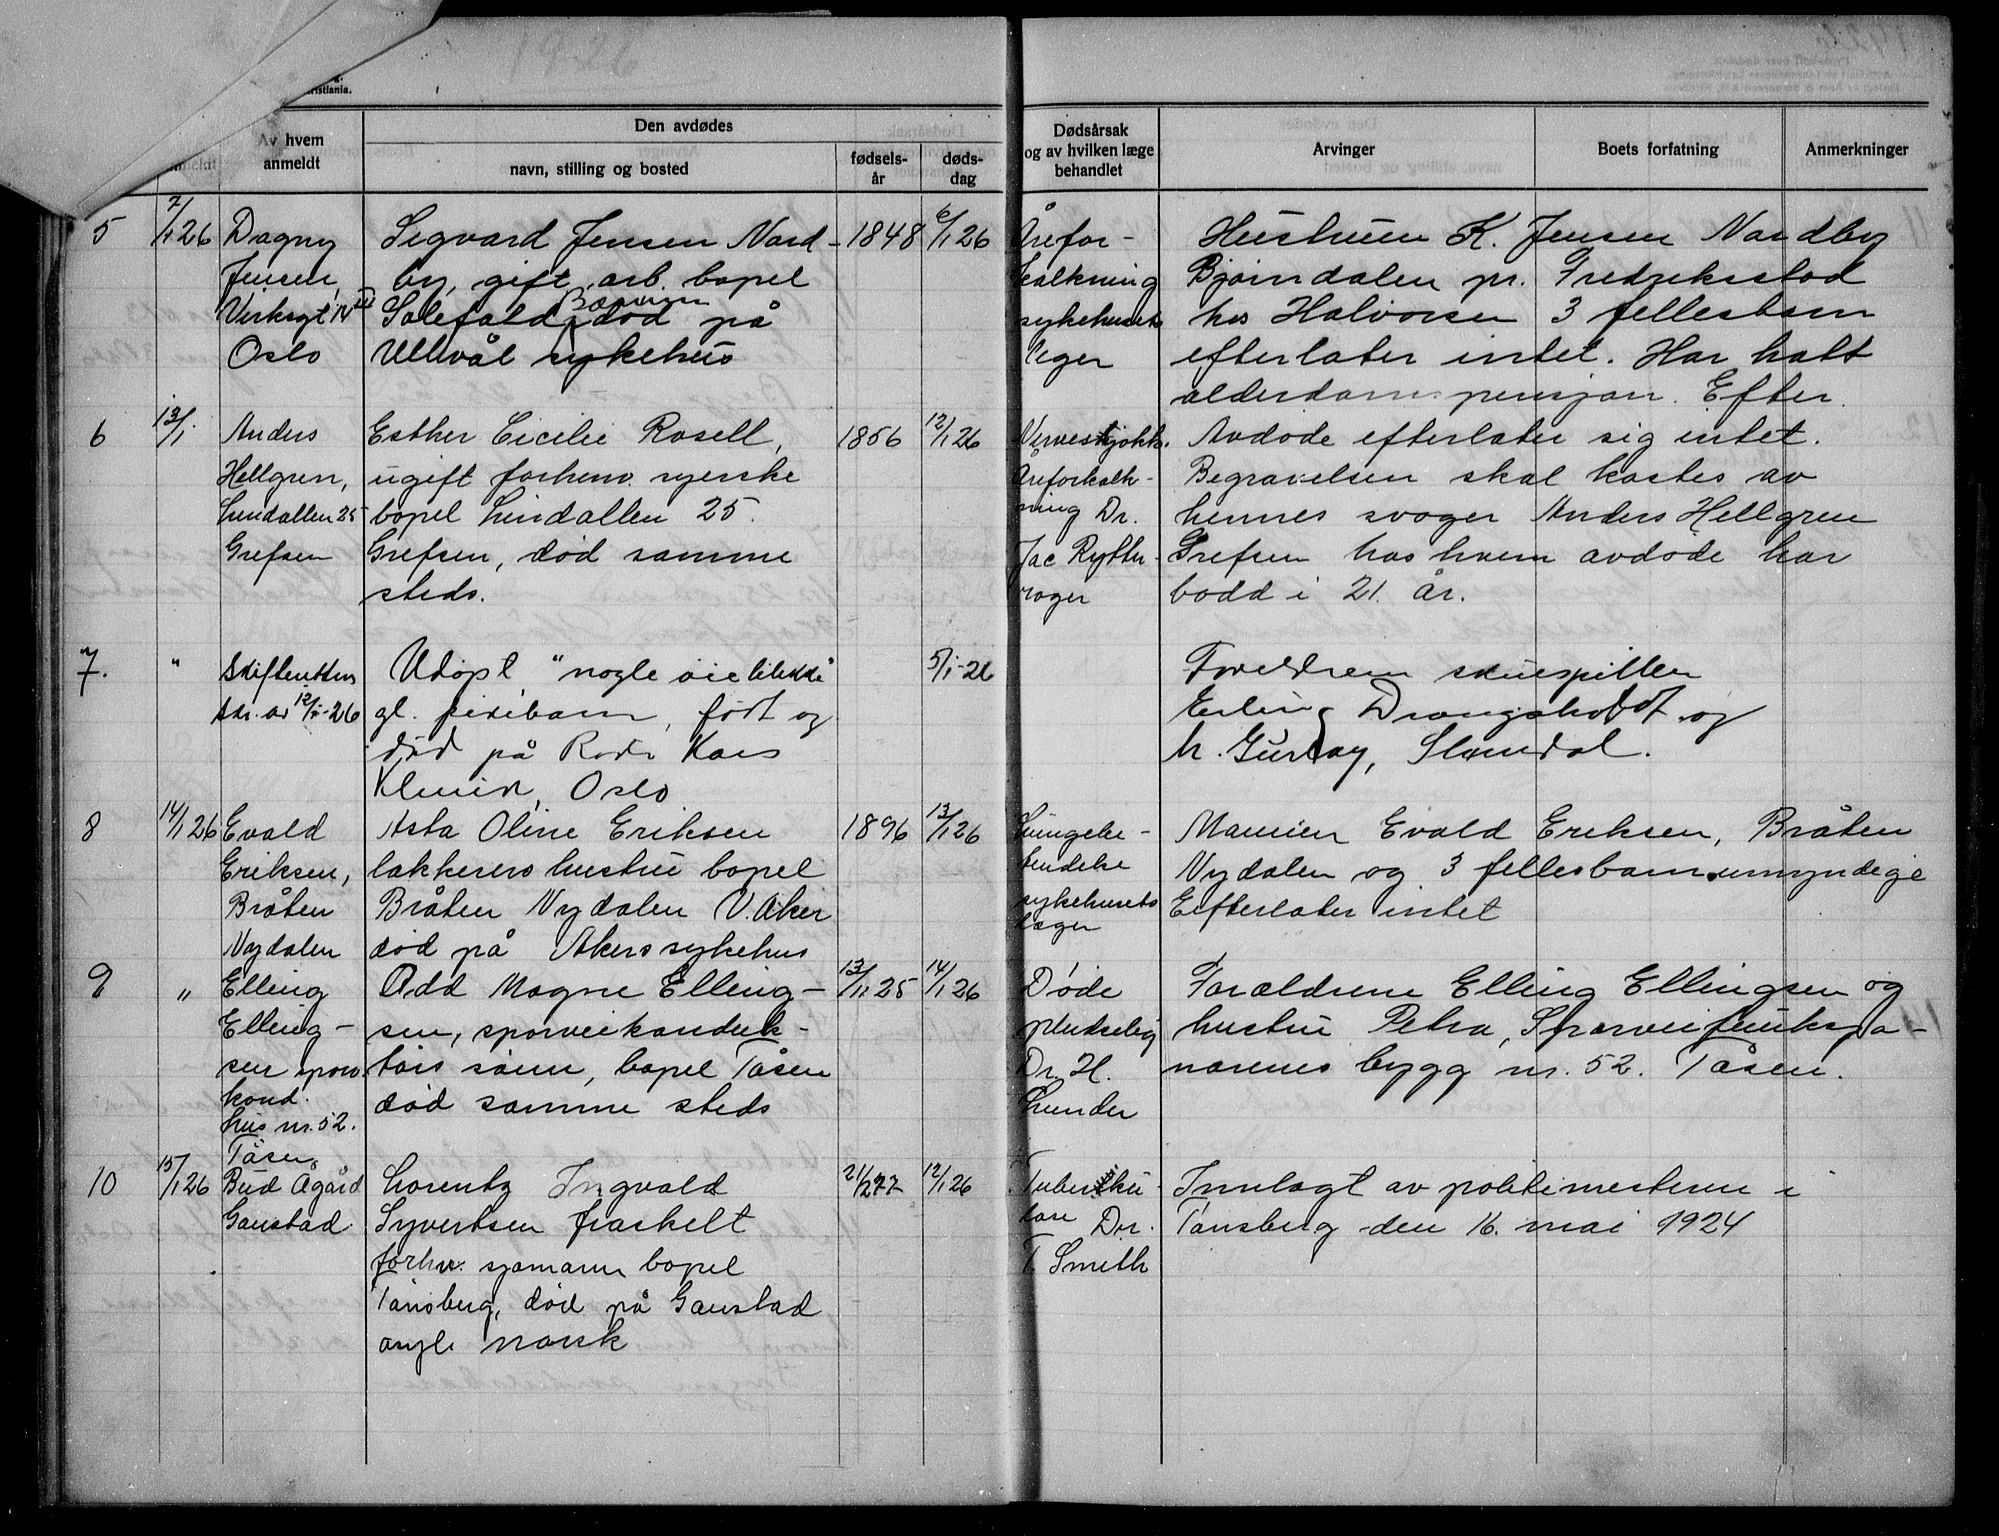 1926
ristiania.
meldt
Av hvem
anmeldt
Den avdødes
navn, stilling og bosted
fødsels-
år
døds-
dag
Dødsårsak
og av hvilken læge
behandlet
Arvinger
Boets forfatning
Anmerkninger
5
7/1 26
Dagny
Jensen,
Verksgt
Oslo
Segvard Jensen Nord-
by, gift, arb. bopel
Solefald, Bærum død på
Ullevål sykehus
1848
6/1 26
Årefor-
kalkning
sykehusets
leger
Hustruen K. Jensen Nordby
Bjørndalen pr. Fredriksstad
hos Halvorsen 3 fellesbarn
efterlater intet. Har hatt
alderdomspensjon. Efter.
6
13/1.
Anders
Hellgren,
Lindallen 25
Grefsen
Esther Cicilie Rosell,
ugift forhenv. syerske
bopel Lindallen 25.
Grefsen, død samme
steds.
1856
12/1 26
Areforkalk-
ning Dr.
Jac Rytter-
rager
Avdøde efterlater sig intet.
Begravelsen skal kostes av
hennes svoger Anders Hellgren
Grefsen hos hvem avdøde har
bodd i 21 år.
7.
"
Skifterettens
skr. av 12/1-26
Udøpt, "nogle øieblikke"
gl. pikebarn, født og
død på Røde Kors
Klinik, Oslo
5/1-26
Foreldrene skuespiller
Erling Drangsholdt og
h. Gurlay, Slemdal.
8
14/1 26
Evald
Eriksen,
Bråten
Nydalen
Asta Oline Eriksen
lakkerers hustru bopel
Bråten Nydalen V. Aker
død på Akers sykehus
1896
13/1 26
Lungebe-
tendelse
sykehusets
læger
Mannen Evald Eriksen, Bråten
Nydalen og 3 fellesbarn umyndige
Efterlater intet
9
"
Elling
Elling-
sen sporv
kond.
hus nr. 52.
Tåsen
Odd Magne Elling-
sen, sporveikonduk-
tørs sønn, bopel Tåsen
død samme steds
13/11 25
14/1 26
Døde
pludselig
Dr. H.
Lunder
Forældrene Elling Ellingsen og
hustru Petra, Sporveifunksjo-
nærenes bygg nr. 52. Tåsen.
10
15/1 26
Bud Ågård
Gaustad.
Lorentz Ingvald
Syvertsen fraskelt
forhv. sjømann bopel
Tønsberg, død på Gaustad
asyl. norsk
21/2 77
12/1 26
Tuberku-
lose Dr.
T. Smith
Innlagt av politimesteren i
Tønsberg den 16. mai 1924